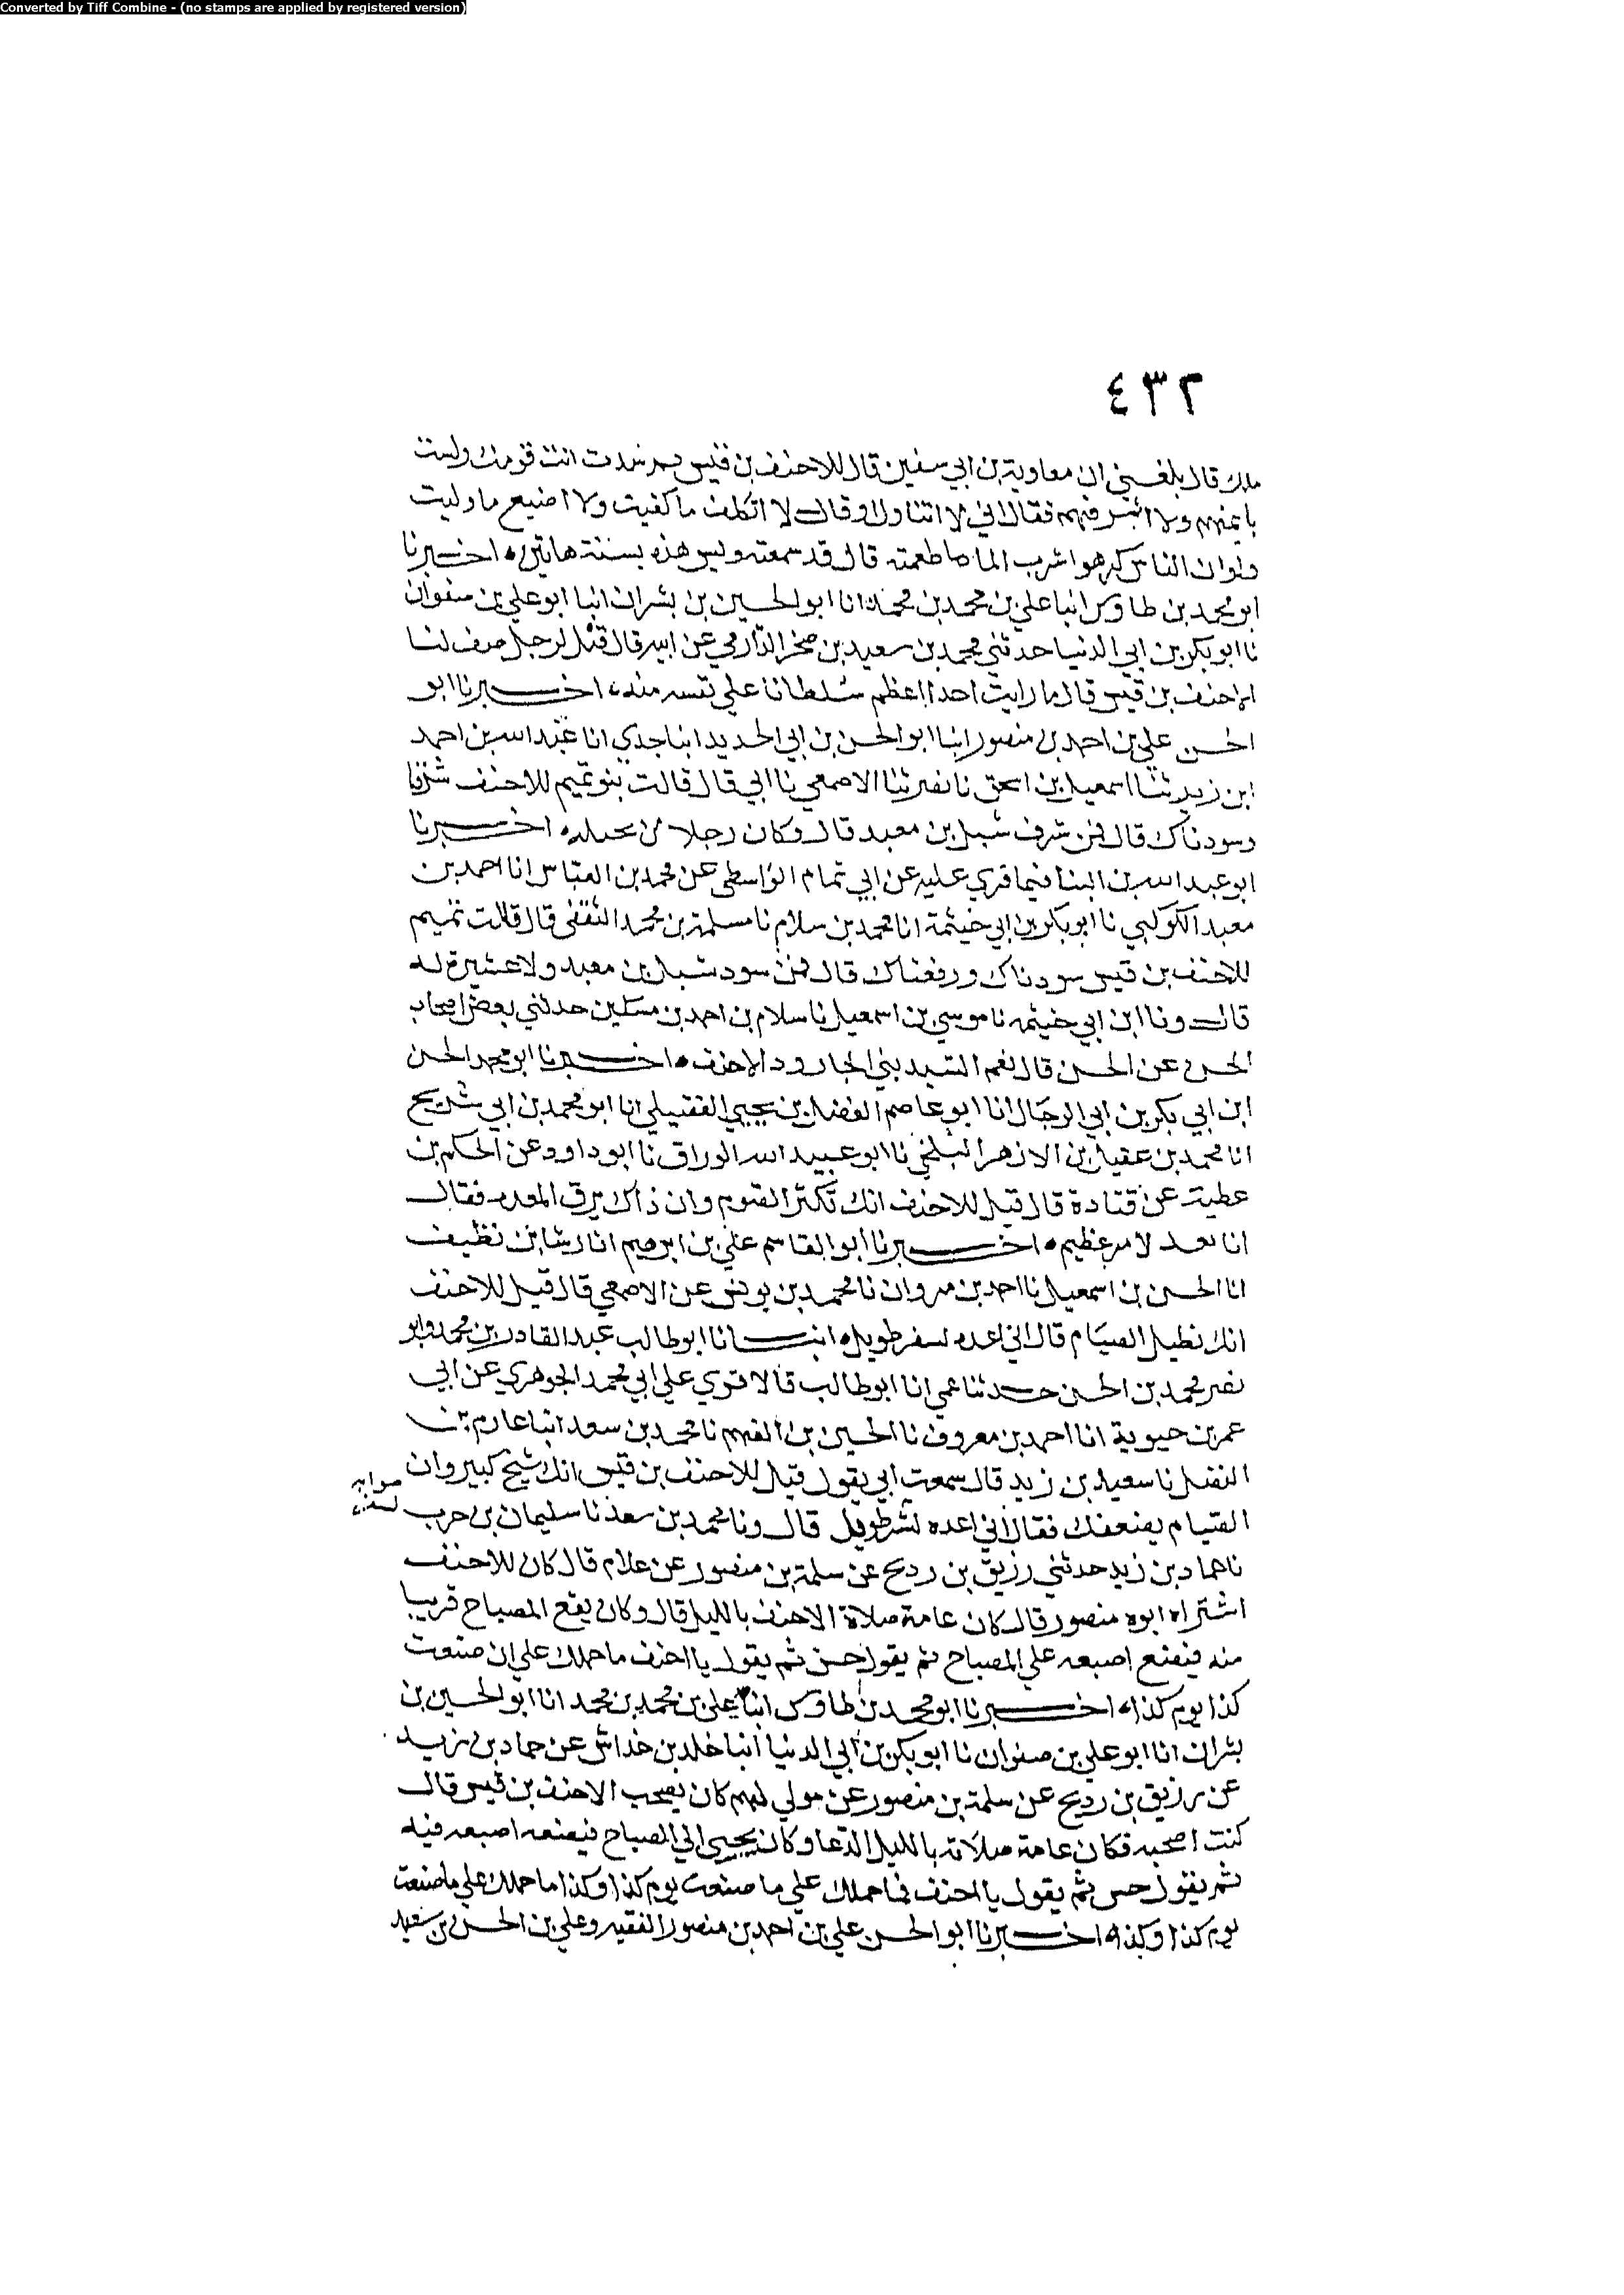 Converted by Tiff Combine - (no stamps are applied by registered version)
٤٣٢
ملك قال بلغني ان معاوية بن ابي سفين قال للاحنف بن قيس بم سدت انت قومك ولست
باثمنهم ولا اشرفهم فقال اني لا اتناول او قال لا اتكلف ما كفيت ولا اضيع ما وليت
ولو ان الناس كرهوا شرب الما ما طعمته قال قد سمعته وليس هذه بسنته هاتين اخبرنا
ابو محمد بن طاوس انبا علي بن محمد بن محمد انا ابو الحسين بن بشران انبا ابو علي بن صفوان
نا ابو بكر بن ابي الدنيا حدثني محمد بن سعيد بن صخر الدارمي عن ابيه قال قيل لرجل صف لنا
الاحنف بن قيس قال ما رايت احدا اعظم سلطانا علي نفسه منه اخبرنا ابو
الحسن علي بن احمد بن منصور انبا ابو الحسن بن ابي الحديد انبا جدي انا عبد الله بن احمد
ابن زبر ثنا اسمعيل بن اسحق نا نصر ثنا الاصمعي نا ابي قال قالت بنو تميم للاحنف شرفنا
وسودناك قال فمن شرف شبل بن معبد قال وكان رجلا من بجيله اخبرنا
ابو عبد الله بن البنا فيما قري عليه عن ابي تمام الواسطي عن محمد بن العباس انا احمد بن
معبد الكوكبي نا ابو بكر بن ابي خيثمة انا محمد بن سلام نا مسلمة بن محمد الثقفي قال قالت تميم
للاحنف بن قيس سودناك ورفعناك قال فمن سود شبل بن معبد ولا عشيرة له
قال ونا ابن ابي خيثمه نا موسي بن اسمعيل نا سلام بن احمد بن مسكين حدثني بعض اصحاب
الحسن عن الحسن قال نعم السيد بني الجارود الاحنف اخبرنا ابو محمد الحسن
ابن ابي بكر بن ابي الرجال انا ابو عاصم الفضل بن يحيي الفضيلي انا ابو محمد بن ابي شريح
انا محمد بن عقيل بن الازهر البلخي نا ابو عبيد الله الوراق نا ابو داوود عن الحكم بن
عطية عن قتادة قال قيل للاحنف انك تكثر الصوم وان ذاك يرق المعدة فقال
انا نعد لامر عظيم اخبرنا ابو القاسم علي بن ابرهيم انا رشا بن نظيف
انا الحسن بن اسمعيل نا احمد بن مروان نا محمد بن يونس عن الاصمعي قال قيل للاحنف
انك تطيل الصيام قال اني اعده لسفر طويل انبانا ابو طالب عبد القادر بن محمد وابو
نصر محمد بن الحسن حدثنا عمي انا ابو طالب قالا قري علي ابي محمد الجوهري عن ابي
عمر بن حيوية انا احمد بن معروف نا الحسين بن الفهم نا محمد بن سعد انبا عارم بن
الفضل نا سعيد بن زيد قال سمعت ابي يقول قيل للاحنف بن قيس انك شيخ كبير وان
صوابه
لسفر
الصيام يضعفك فقال اني اعده لشر طويل قال ونا محمد بن سعد نا سليمان بن حرب
نا حماد بن زيد حدثني زريق بن رديح عن سلمة بن منصور عن غلام قال كان للاحنف
اشتراه ابوه منصور قال كان عامة صلاة الاحنف بالليل قال وكان يضع المصباح قريبا
منه فيضع اصبعه علي المصباح ثم يقول حس ثم يقول يا احنف ما حملك علي ان صنعت
كذا يوم كذا اخبرنا ابو محمد بن طاوس انبا علي بن محمد بن محمد انا ابو الحسين بن
بشران انا ابو علي بن صفوان نا ابو بكر بن ابي الدنيا انبا خلد بن خداش عن حماد بن زيد
عن زريق بن رديح عن سلمة بن منصور عن مولي لهم كان يصحب الاحنف بن قيس قال
كنت اصحبه فكان عامة صلاته بالليل الدعا وكان يجيي الي المصباح فيضع اصبعه فيه
ثم يقول حس ثم يقول يا احنف فما حملك علي ما صنعت يوم كذا وكذا ما حملك علي ما صنعت
يوم كذا وكذا اخبرنا ابو الحسن علي بن احمد بن منصور الفقيه وعلي بن الحسن بن سعيد